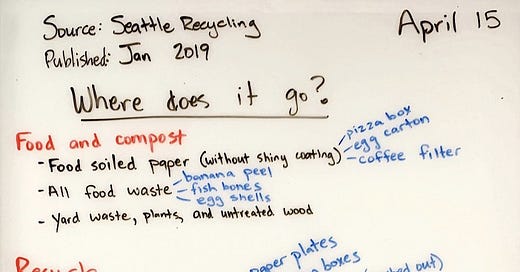 Source: Seattle Recycling
April 15
Published: Jan 2019
Where does it go?
Food and compost
- Food soiled paper (without shiny coating)
pizza box
egg carton
coffee filter
- All food waste
banana peel
fish bones
egg shells
- Yard waste, plants, and untreated wood
Recycle
paper plates
boxes
out)